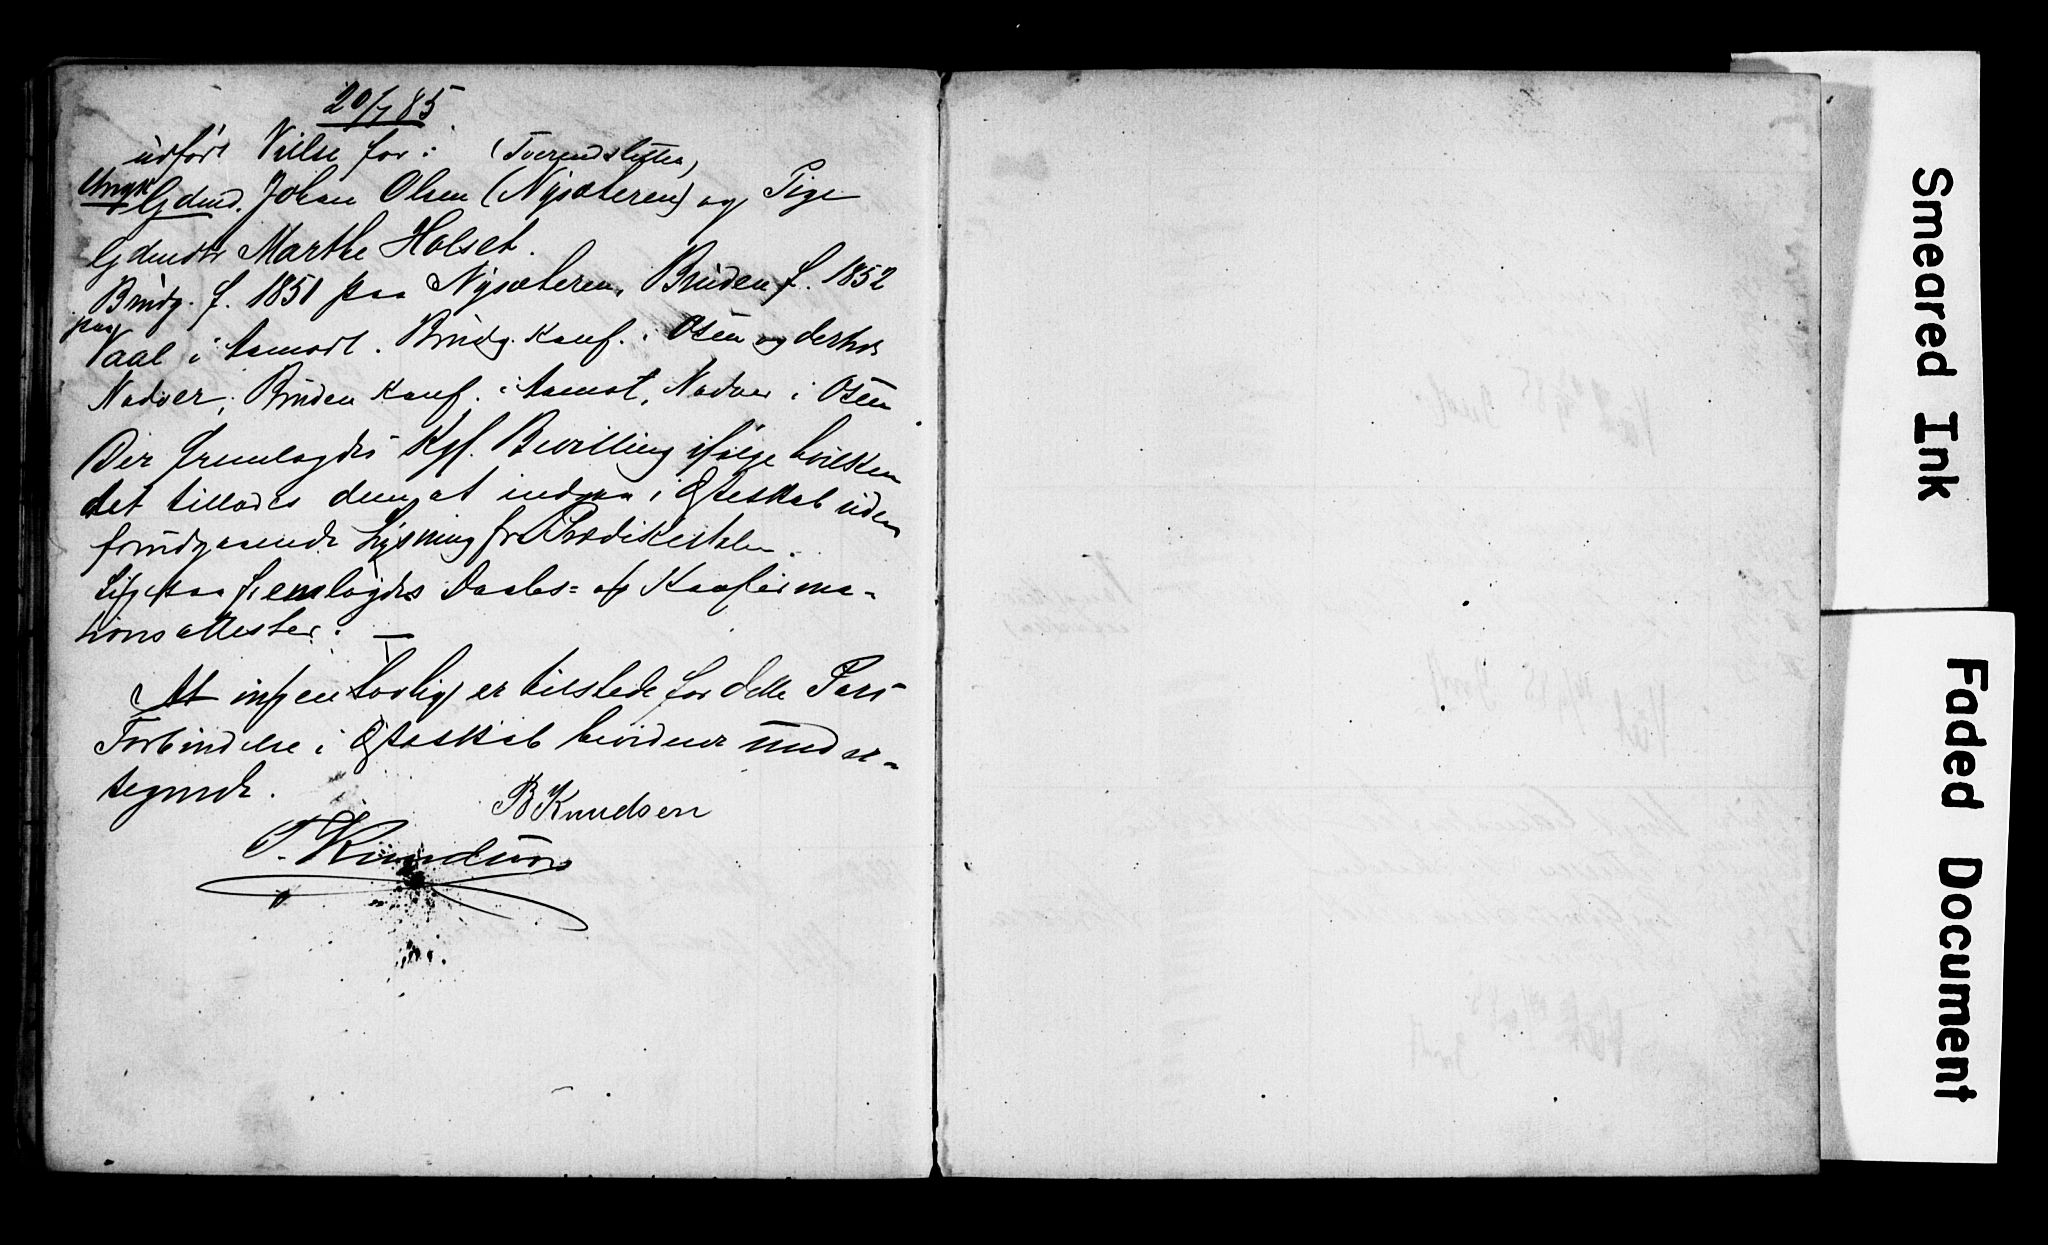 20/7 85.
udført Vielse for: (Tverendsletten)
Ungk Gdmd. Johan Olsen (Nysæteren) og Pige
Gdmdtr Marthe Holset.
Brudg. f. 1851 paa Nysæteren, Bruden f. 1852
paa Vaal i Aamodt. Brudg. Konf. i Osen og derhos
Nadver; Bruden Konf. i Aamot, Nadver i Osen
Der fremlagdes Kgl. Bevilling ifølge hvilken
det tillodes dem at indgaa i Egteskab uden
forudgaaende Lysning fra Prædikestolen.
Ligesaa fremlagdes Daabs= og Konfirma-
tionsattester. —
At ingen Lovlig er tilstede for dette Pars
Forbindelse i Egteskab bevidner under-
tegnede.
B Knudsen
O. Knudsen
Smeared Ink
Faded Document